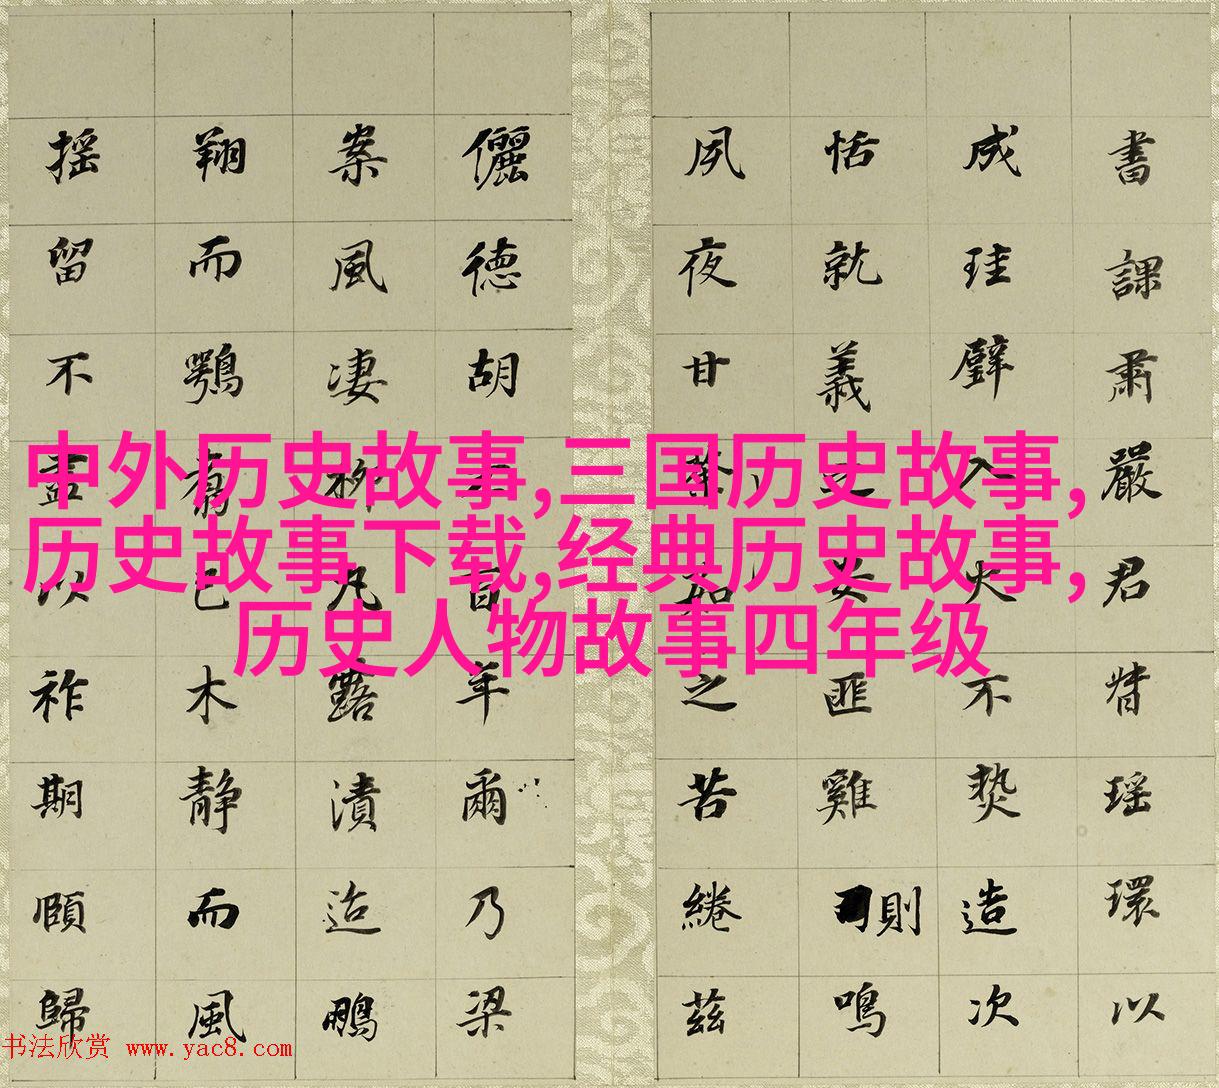 中外历史故事,三国历史故事,
历史故事下载,经典历史故事,
历史人物故事四年级
書課肅嚴君瑶環以
成珪璧入火不造次
恬就義之匪雞則鳴
夙夜甘之苦綣茲
儷德胡百年爾乃梁
案風淒柳露漬迨鵬
翔而鶚已木靜而風
摇留不以祚期頤歸
书法欣赏 www.yac8.com